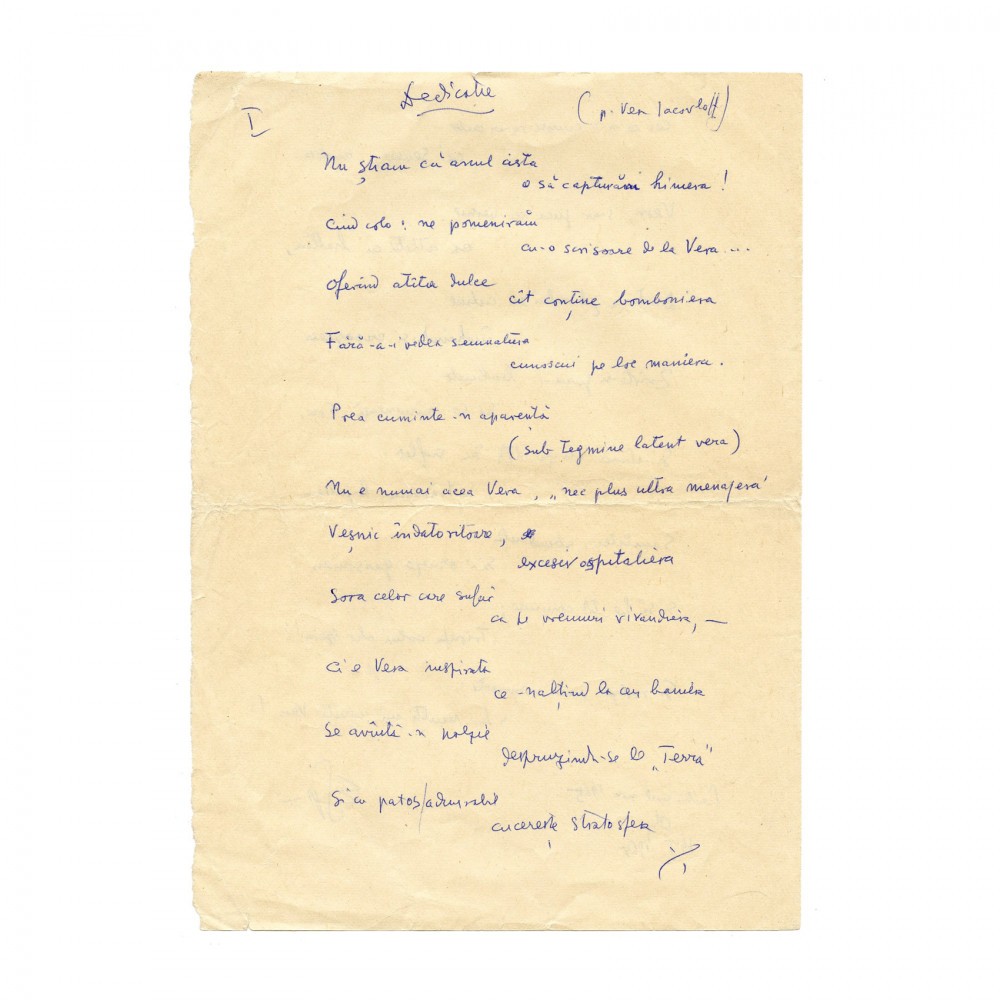 Dedicație
I
(p. Vera Iacovloff)
Nu știam că anul ăsta
o să capturăm himera!
Cînd colo: ne pomenirăm
cu-o scrisoare de la Vera...
Oferind atîta dulce
cît conține bomboniera
Fără-a-i vedea semnătura
cunoscui pe loc maniera.
Prea cuminte-n aparență
(sub tegmine latent vera)
Nu e numai acea Vera, „nec plus ultra menajeră"
Veșnic îndatoritoare,
excesiv ospitalieră
Sora celor care sufăr
ca pe vremuri vivandiera, —
Ci e Vera inspirată
ce-nalțînd la cer
Se avîntă-n poezie
desprinzîndu-se de „Terra"
Și cu patos admirabil
cucerește stratosfera